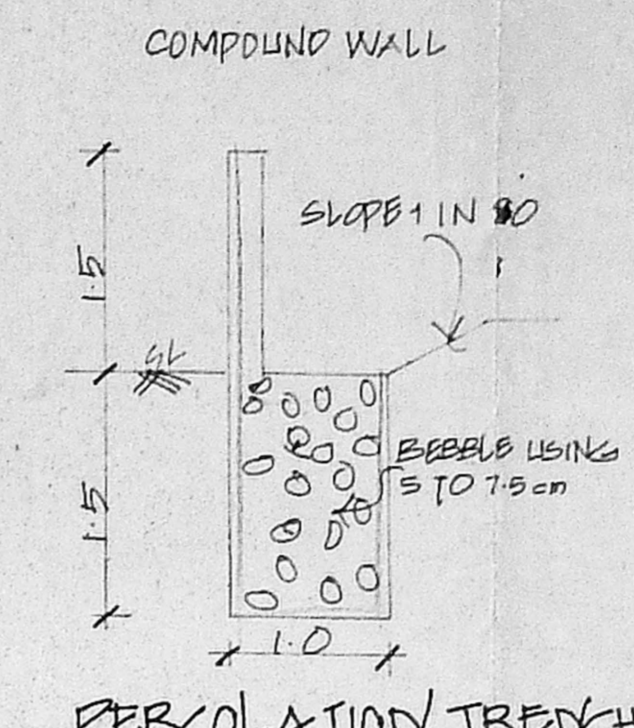 COMPOUND WALL
SLOPE 1 IN
1.5
GL
BEBBLE USING
5 TO 7.5cm
1.5
1.0
PERCOLATION TRENCH